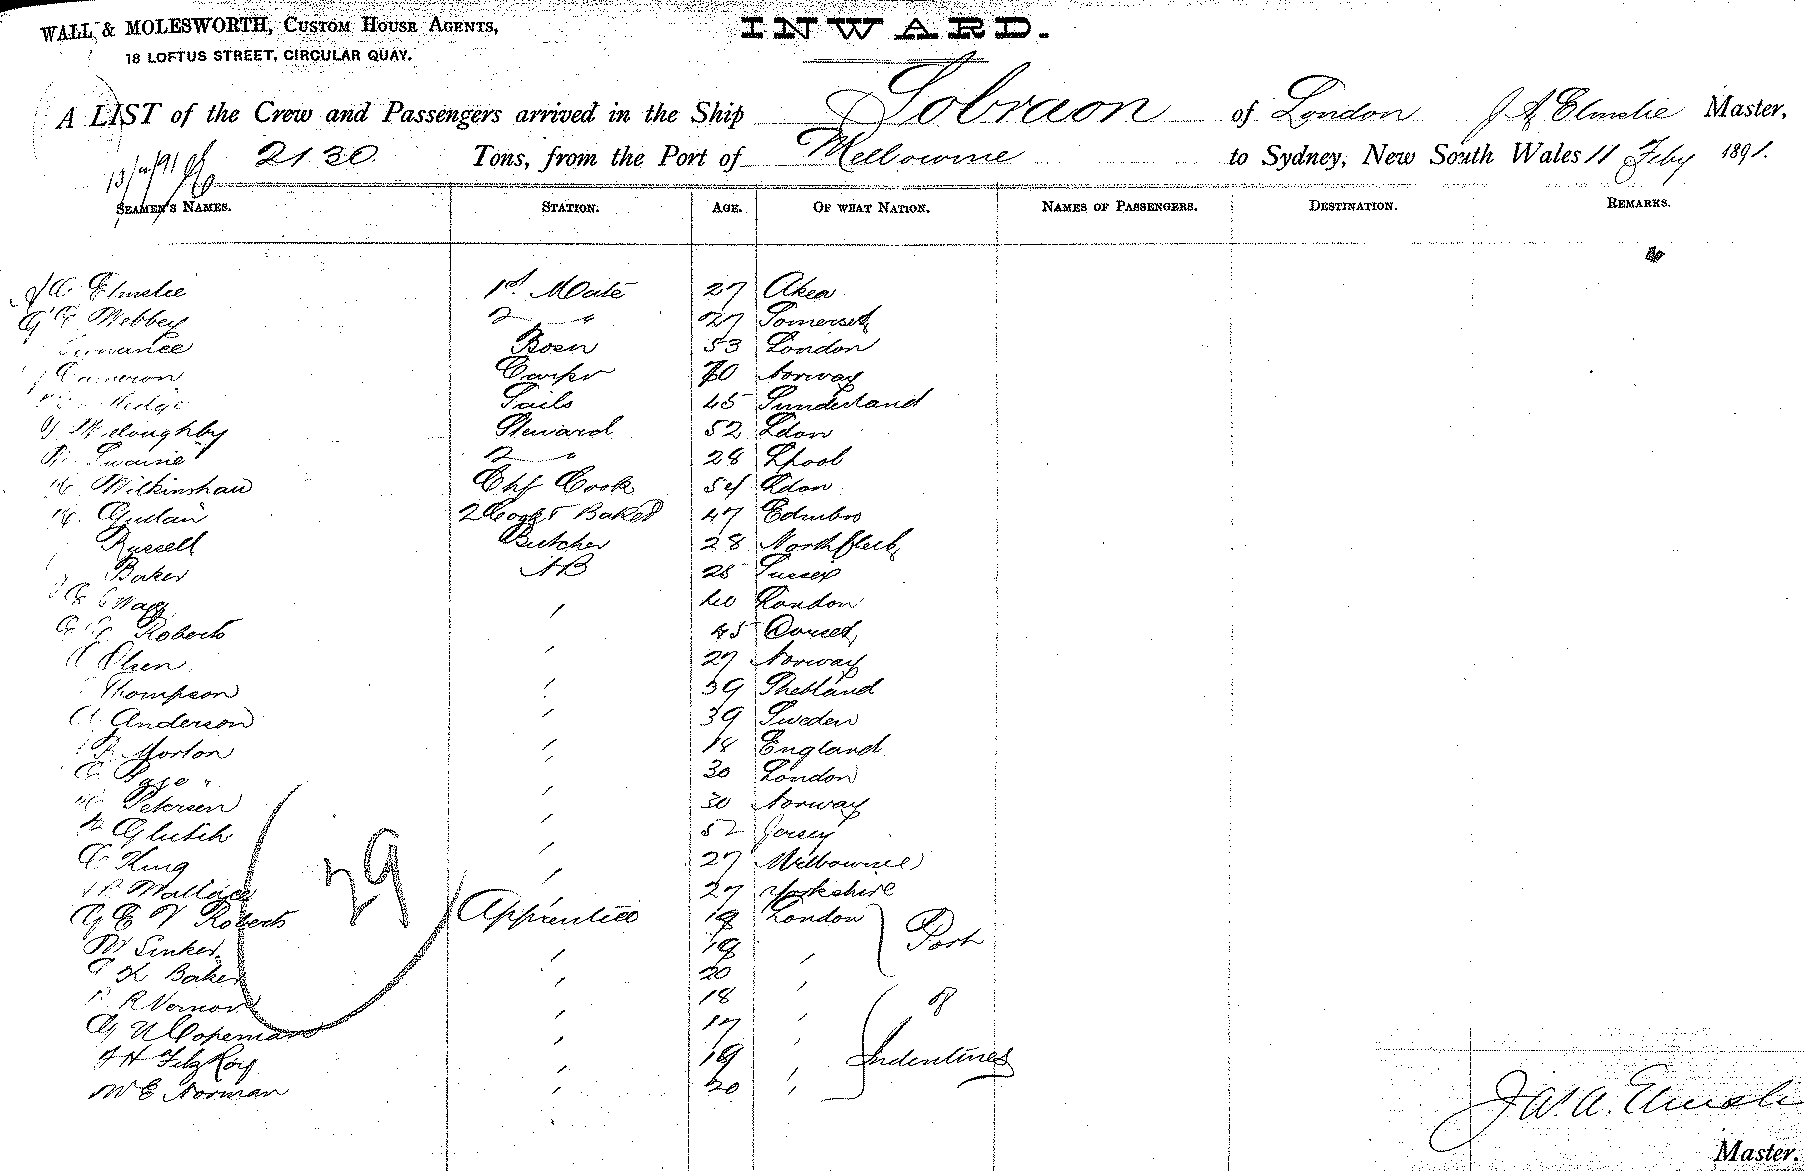 WALL & MOLESWORTH, CUSTOM HOUSE AGENTS,
18 LOFTUS STREET, CIRCULAR QUAY.
INWARD.
A LIST of the Crew and Passengers arrived in the Ship Sobraon of London J A Elmslie Master,
2130 Tons, from the Port of Melbourne to Sydney, New South Wales 11 Feby 1891.
SEAMEN'S NAMES. STATION. AGE. OF WHAT NATION. NAMES OF PASSENGERS. DESTINATION. REMARKS.
Elmslie 1st Mate 27
Webber 2 " 27 Somerset
Bosn 53 London
Cameron Carpr Norway
Sails 45 Sunderland
Willoughby Steward 52 Ldon
Swaine 2 " 28 Lpool
Wilkinshaw Chf Cook 54 Ldon
2 Cook & Baker 47 Edinbro
Russell Butcher 28 Northfleet
Baker AB 25 Sussex
Wagg ' 40 London
Roberts ' 45 Dorset
Olsen ' 27 Norway
Thompson ' 39 Shetland
Anderson ' 39 Sweden
Morton ' 18 England
Page ' 30 London
Petersen ' 30 Norway
' 52 Jersey
King ' 27 Melbourne
Wallace ' 27 Yorkshire
G E V Roberts Apprentice 19 London
W Sinker ' 19 ' Port
H Baker ' 20 '
R Vernon 18 ' of
G U Copeman ' 17 '
H FitzRoy ' 19 Indentures
W E Norman ' 20 '
29
J W. A. Elmslie
Master.